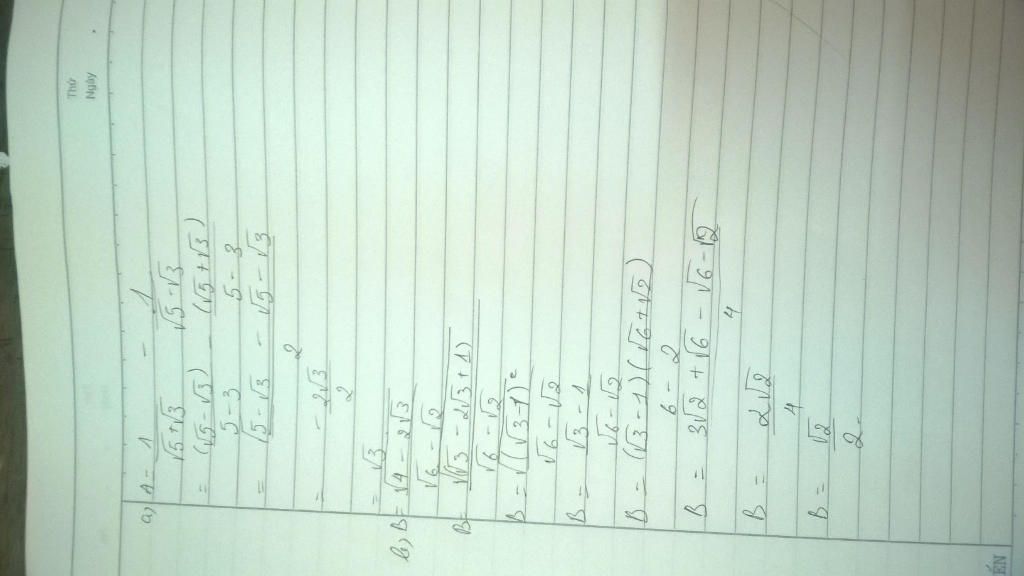 Thứ
Ngày
a) A = 1/(√5+√3) - 1/(√5-√3)
= (√5-√3)/(5-3) - (√5+√3)/(5-3)
= (√5-√3 - √5-√3)/2
= - 2√3/2
= √3
b) B = √(4-2√3)/(√6-√2)
B = √(√3-2√3+1)/(√6-√2)
B = √((√3-1)²)/(√6-√2)
B = (√3-1)/(√6-√2)
B = (√3-1)(√6+√2)/(6-2)
B = (3√2+√6-√6-√2)/4
B = 2√2/4
B = √2/2
ẾN